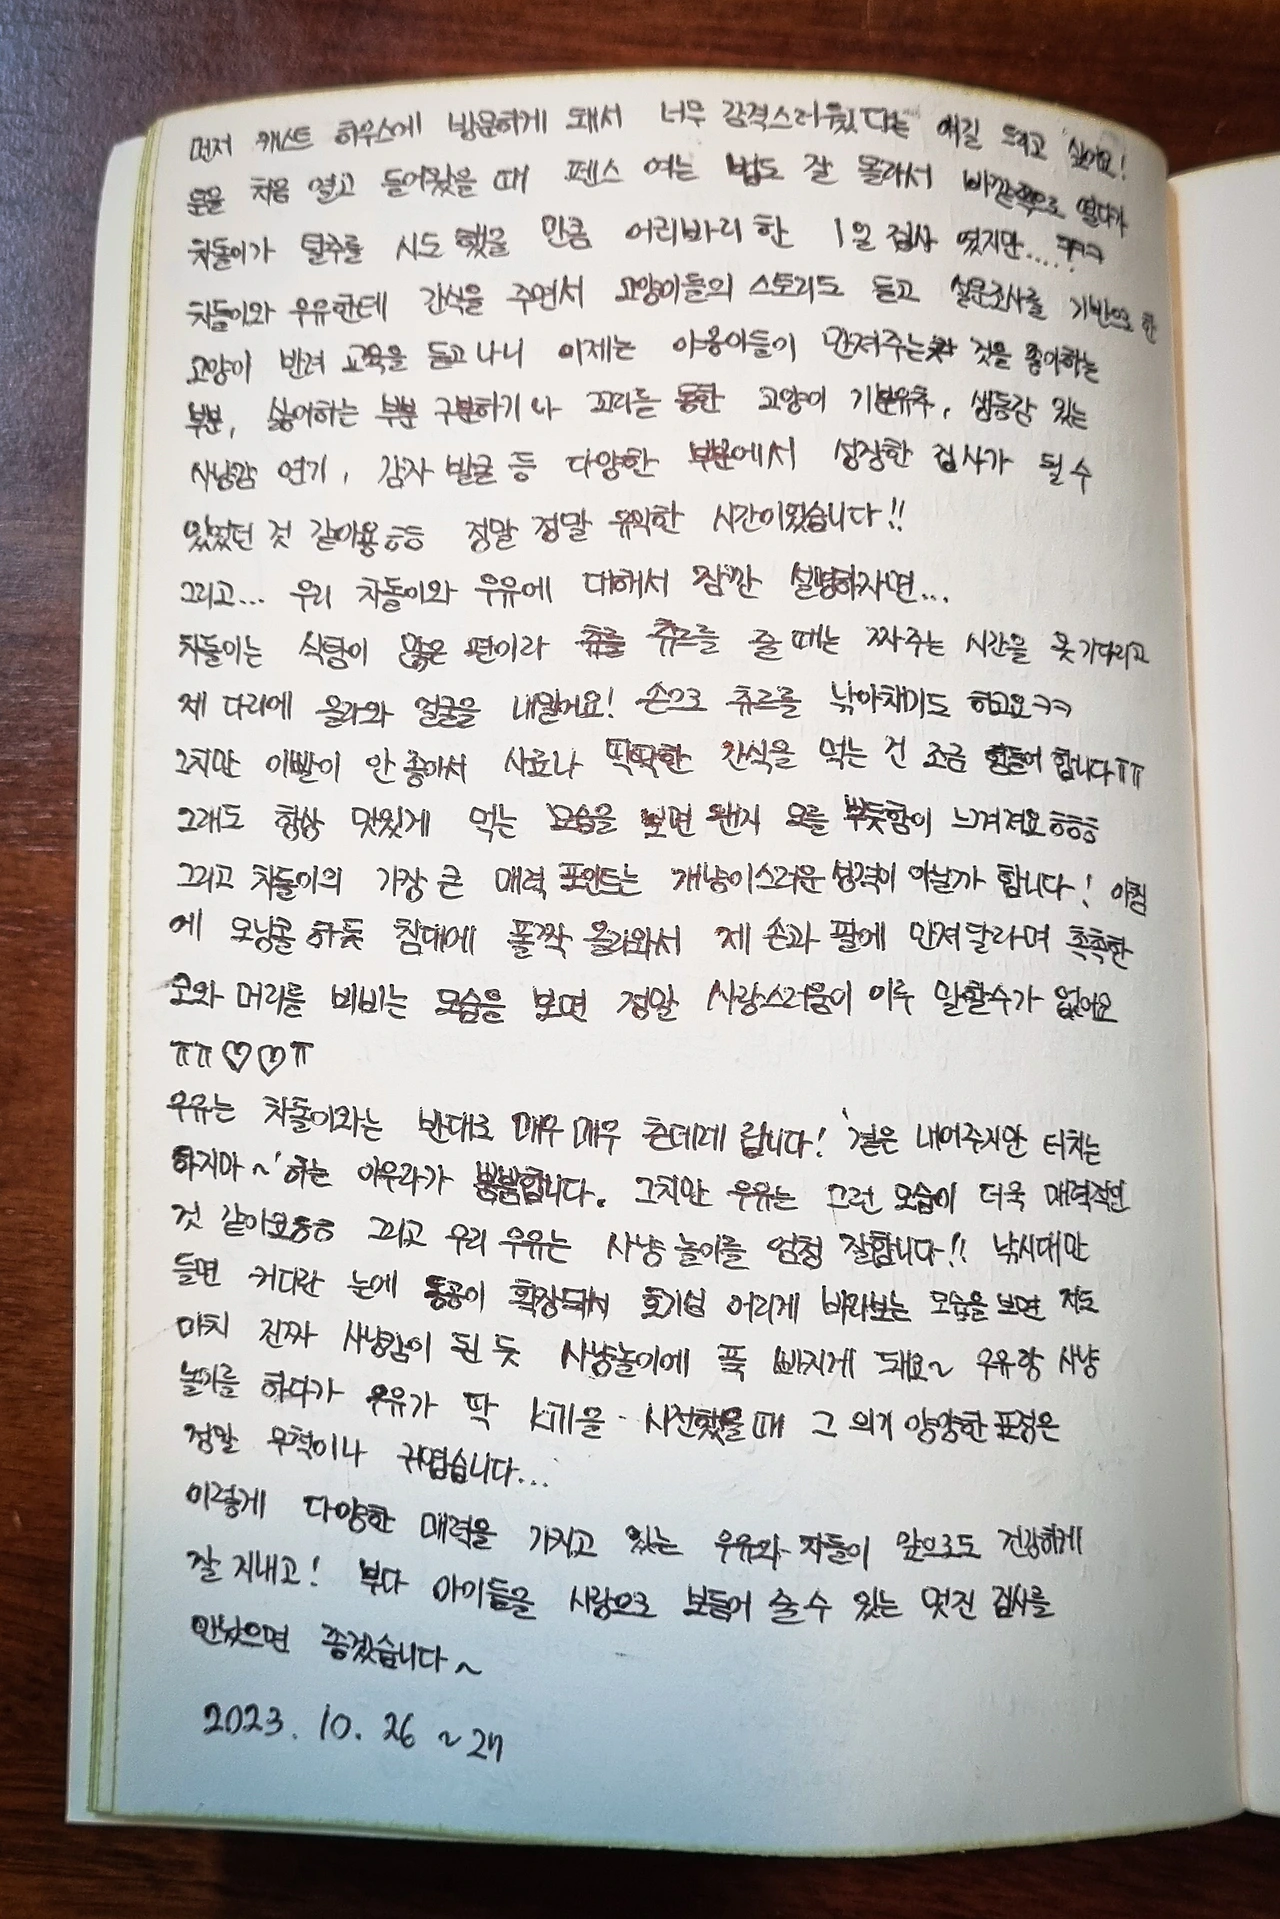 먼저 캐스트 하우스에 방문하게 돼서 너무 감격스러웠다는 얘길 드리고 싶어요!
문을 처음 열고 들어왔을 때 펜스 여는 법도 잘 몰라서 바깥쪽으로 열다가
차돌이가 탈주를 시도했을 만큼 어리바리한 1일 집사 였지만....ㅋㅋㅋ
차돌이와 우유한테 간식을 주면서 고양이들의 스토리도 듣고 설문조사를 기반으로 한
고양이 반려 교육을 듣고 나니 이제는 야옹이들이 만져주는 것을 좋아하는
부분, 싫어하는 부분 구분하기나 꼬리를 통한 고양이 기분유추, 생동감 있는
사냥감 연기, 감자 발굴 등 다양한 부분에서 성장한 집사가 될 수
있었던 것 같아용ㅎㅎ 정말 정말 유익한 시간이었습니다!!
그리고... 우리 차돌이와 우유에 대해서 잠깐 설명하자면...
차돌이는 식탐이 많은 편이라 츄르를 줄 때는 짜주는 시간을 못 기다리고
제 다리에 올라와 얼굴을 내밀어요! 손으로 츄르를 낚아채기도 하고요ㅋㅋ
그치만 이빨이 안 좋아서 사료나 딱딱한 간식을 먹는 건 조금 힘들어 합니다ㅠㅠ
그래도 항상 맛있게 먹는 모습을 보면 왠지 모를 뿌듯함이 느껴져요ㅎㅎㅎ
그리고 차돌이의 가장 큰 매력 포인트는 개냥이스러운 성격이 아닐까 합니다! 아침
에 모닝콜 하듯 침대에 폴짝 올라와서 제 손과 팔에 만져달라며 촉촉한
코와 머리를 비비는 모습을 보면 정말 사랑스러움이 이루 말할수가 없어요
ㅠㅠ♡♡ㅠ
우유는 차돌이와는 반대로 매우 매우 츤데레 랍니다! '곁은 내어주지만 터치는
하지마~' 하는 아우라가 뿜뿜합니다. 그치만 우유는 그런 모습이 더욱 매력적인
것 같아요ㅎㅎ 그리고 우리 우유는 사냥 놀이를 엄청 잘합니다!! 낚시대만
들면 커다란 눈에 동공이 확장돼서 호기심 어리게 바라보는 모습을 보면 저도
마치 진짜 사냥감이 된 듯 사냥놀이에 푹 빠지게 돼요~ 우유랑 사냥
놀이를 하다가 우유가 딱 사냥을 시전했을 때 그 의기양양한 표정은
정말 무척이나 귀엽습니다...
이렇게 다양한 매력을 가지고 있는 우유와 차돌이 앞으로도 건강하게
잘 지내고! 부디 아이들을 사랑으로 보듬어 줄 수 있는 멋진 집사를
만났으면 좋겠습니다~
2023. 10. 26 ~ 27